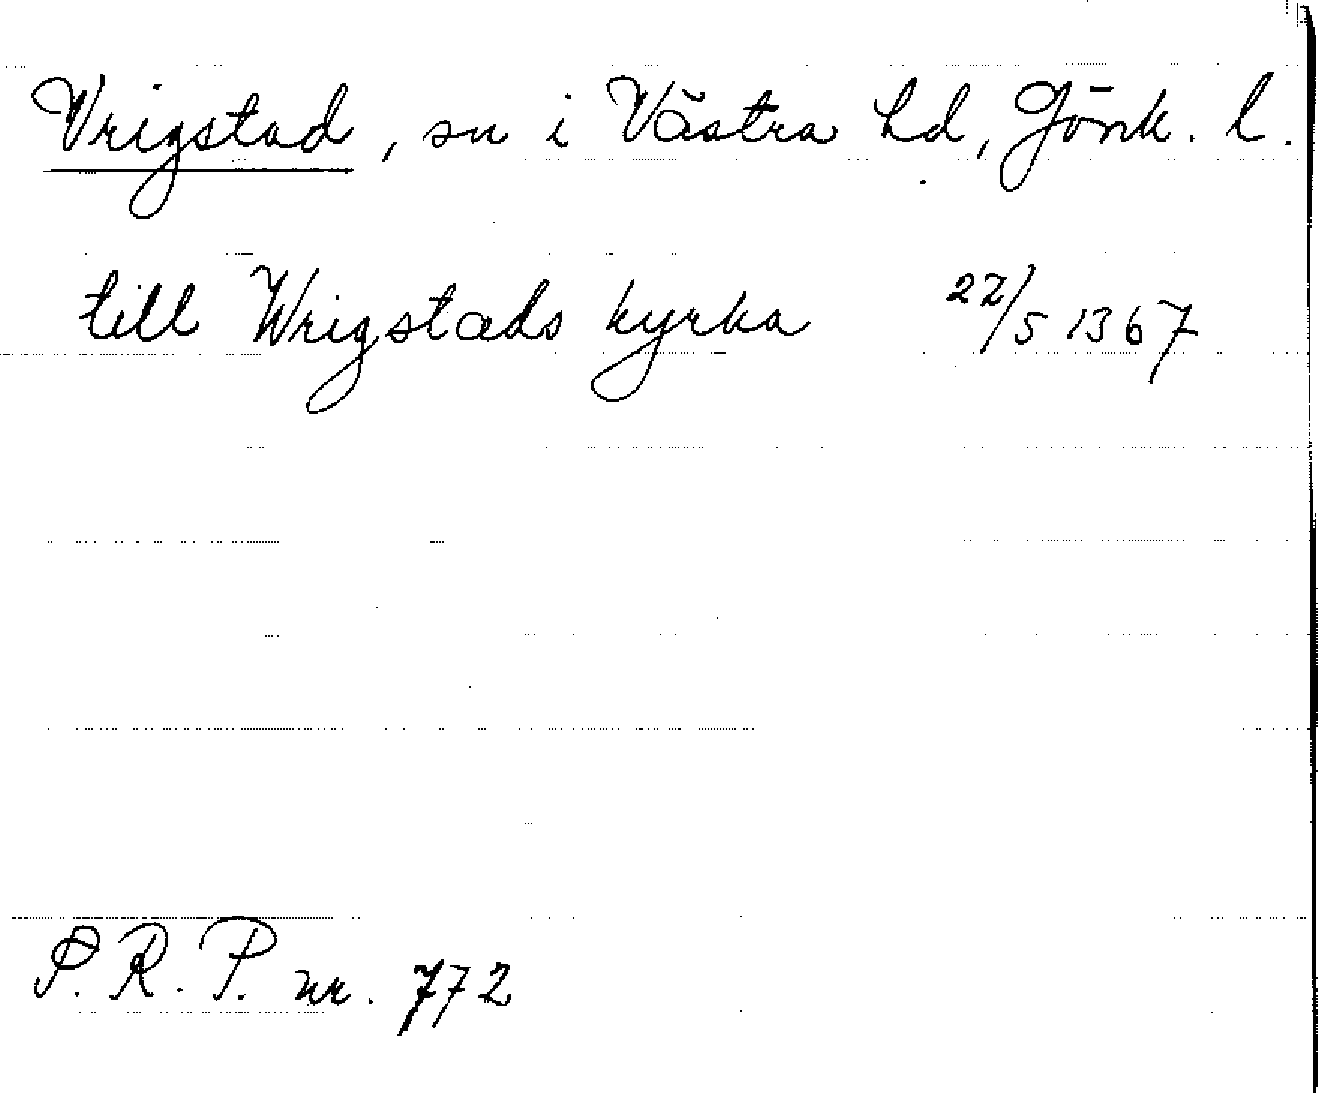 Vrigstad, sn i Västra hd, Jönk. l.
till Wrigstads kyrka 22/5 1367
S.R.P. nr. 772